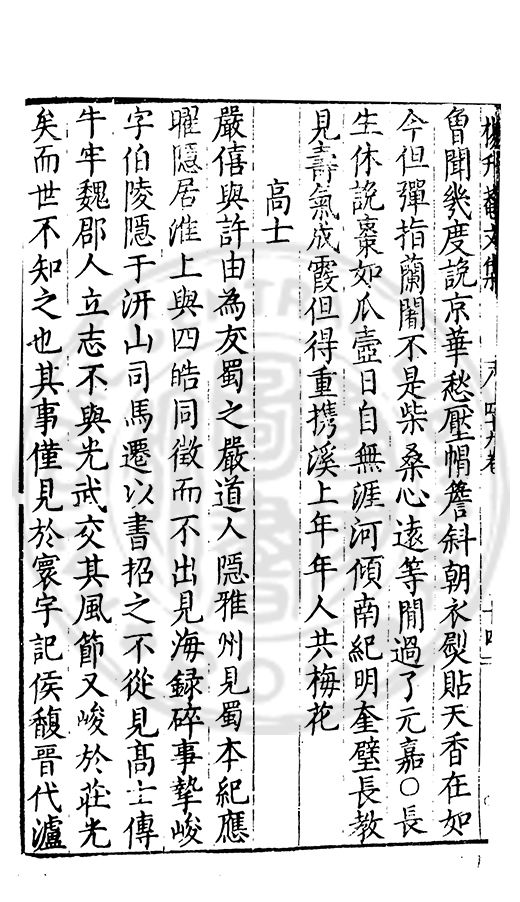 楊升菴文集 四十九卷 十四
曾聞幾度說京華愁壓帽簷斜朝衣熨貼天香在如
今但彈指蘭闍不是柴桑心遠等閒過了元嘉○長
生休說棗如瓜壺日自無涯河傾南紀明奎璧長教
見壽氣成霞但得重携溪上年年人共梅花
高士
嚴僖與許由為友蜀之嚴道人隱雅州見蜀本紀應
曜隱居淮上與四皓同徵而不出見海録碎事摯峻
字伯陵隱于汧山司馬遷以書招之不從見髙士傳
牛牢魏郡人立志不與光武交其風節又峻於莊光
矣而世不知之也其事僅見於寰宇記侯馥晉代瀘